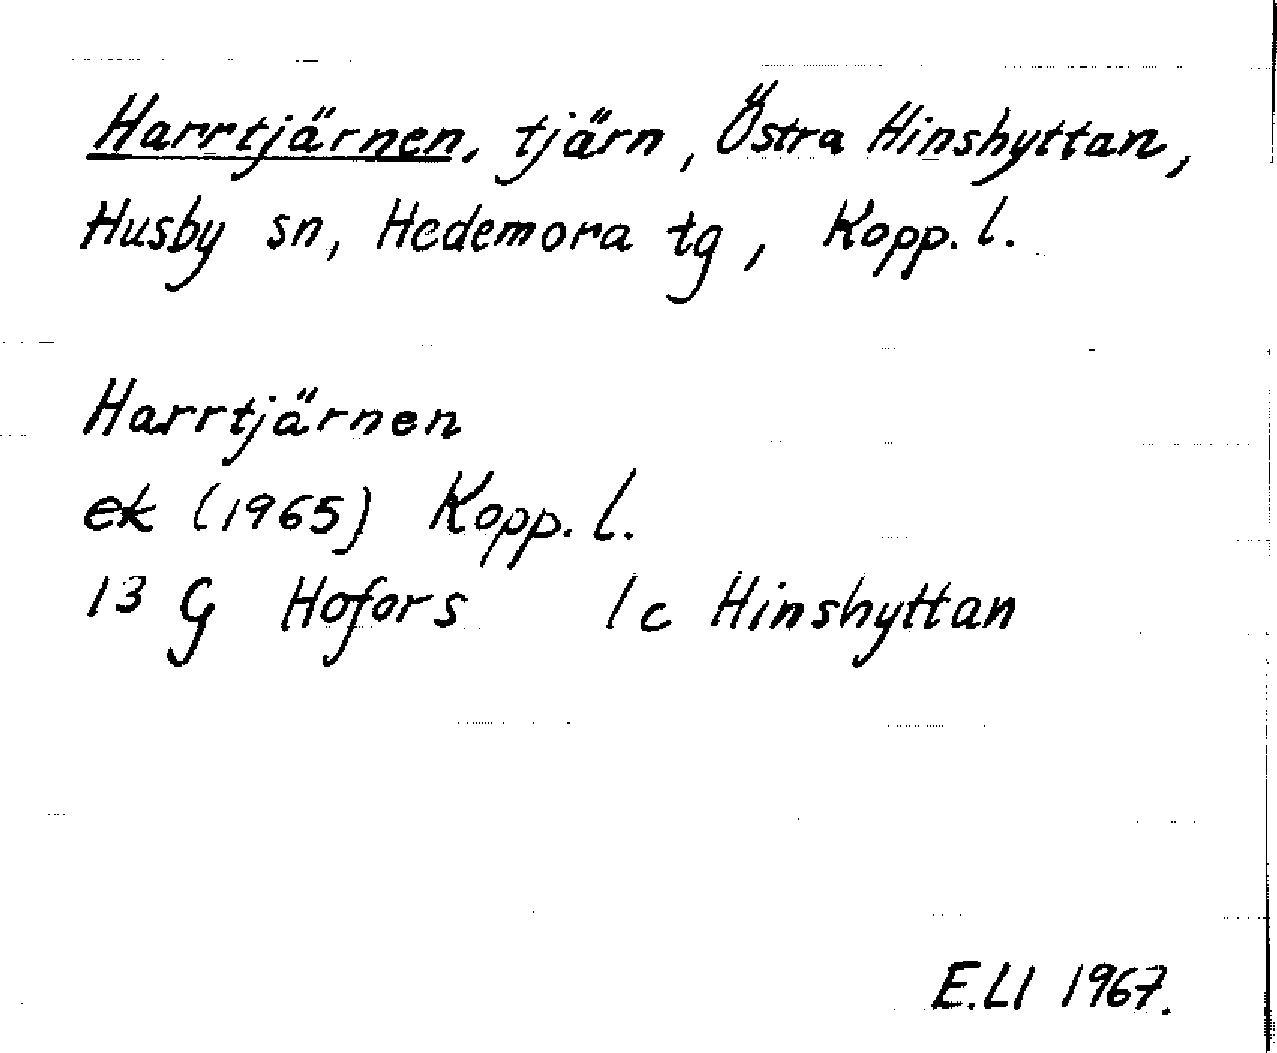 Harrtjärnen, tjärn, Östra Hinshyttan,
Husby sn, Hedemora tg, Kopp. l.
Harrtjärnen
ek (1965) Kopp. l.
13 G Hofors 1c Hinshyttan
E.Ll 1967.